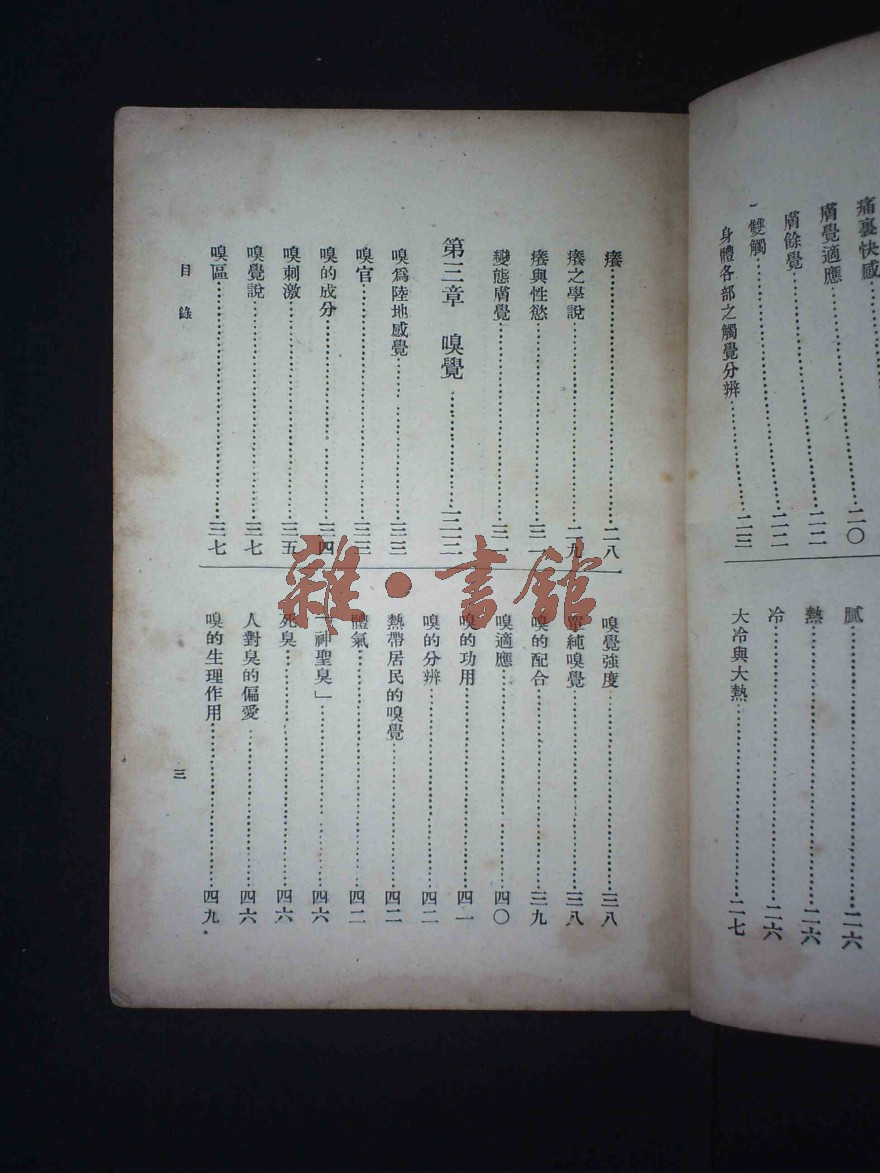 痛裏快感
膚覺適應……二〇
膚餘覺……二二
雙觸……二二
身體各部之觸覺分辨……二三
膩……二六
熱……二六
冷……二六
大冷與大熱……二七
癢……二八
癢之學說……二九
癢與性慾……三一
變態膚覺……三一
第三章 嗅覺……三二
嗅爲陸地感覺……三三
嗅官……三三
嗅的成分……三四
嗅刺激……三五
嗅覺說……三七
嗅區……三七
嗅覺強度……三八
單純嗅覺……三八
嗅的配合……三九
嗅適應……四〇
嗅的功用……四一
嗅的分辨……四二
熱帶居民的嗅覺……四二
體氣……四二
「神聖臭」……四六
死臭……四六
人對臭的偏愛……四六
嗅的生理作用……四九
目錄
三
雜·書館